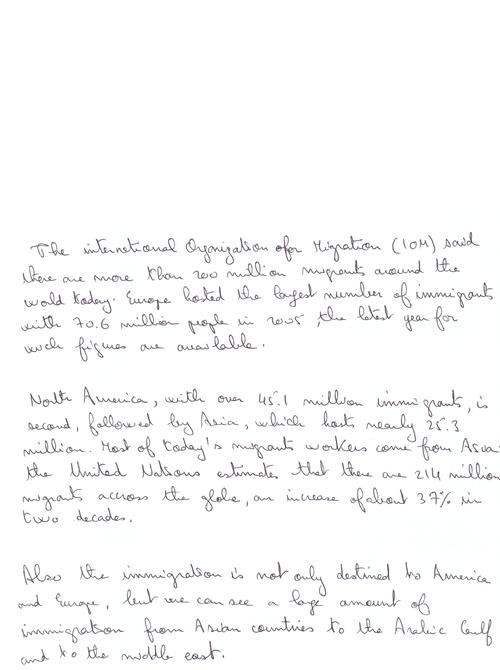 The international Organization ofor Migration (IOM) said
there are more than 200 million migrants around the
world today. Europe hosted the largest number of immigrants
with 70.6 million people in 2005, the latest year for
which figures are available.
North America, with over 45.1 million immigrants, is
second, followed by Asia, which hosts nearly 25.3
million. Most of today's migrants workers come from Asia
the United Nations estimates that there are 214 million
migrants accross the globe, an increase of about 37% in
two decades.
Also the immigration is not only destined to America
and Europe, but we can see a large amount of
immigration from Asian countries to the Arabic Gulf
and to the middle east.